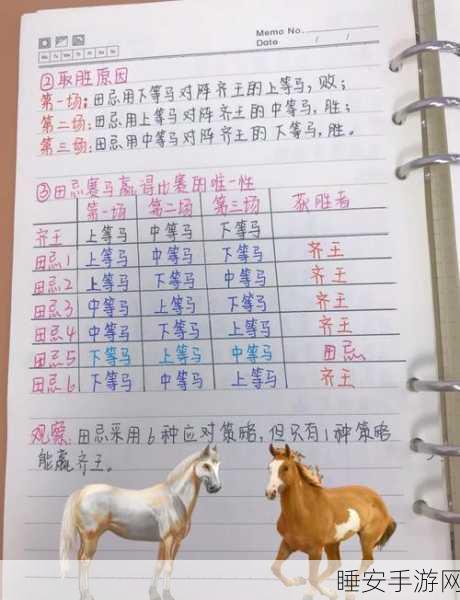 Memo No.
Date / /
Mo Tu We Th Fr Sa Su
②取胜原因
第一场:田忌用下等马对阵齐王的上等马,败;
第二场:田忌用上等马对阵齐王的中等马,胜;
第三场:田忌用中等马对阵齐王的下等马,胜。
③田忌赛马赢得比赛的唯一性
第一场 第二场 第三场 获胜者
齐王 上等马 中等马 下等马
田忌1 上等马 中等马 下等马 齐王
田忌2 上等马 下等马 中等马 齐王
田忌3 中等马 上等马 下等马 齐王
田忌4 中等马 下等马 上等马 齐王
田忌5 下等马 上等马 中等马 田忌
田忌6 下等马 中等马 上等马 齐王
观察:田忌采用6种应对策略,但只有1种策略
能赢齐王。
睡安手游网